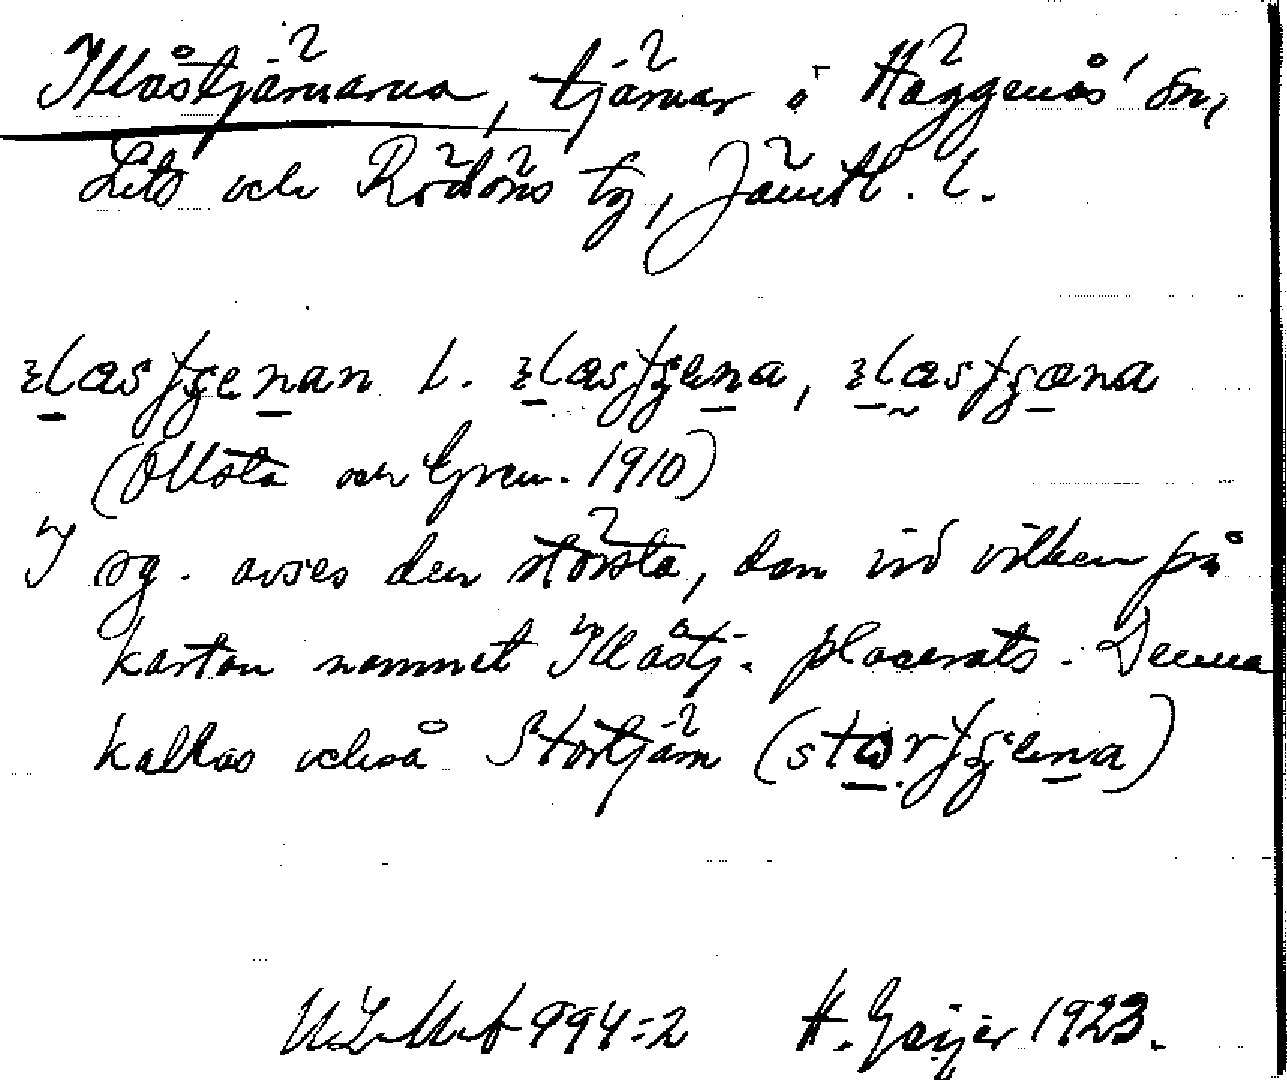 Illåstjärnarna, tjärnar i Häggenås' sn,
Lits och Rödöns tg, Jämtl. l.
ɜlæsʃʒenan l. ɜlæsʃʒena, ɜlæsʃʒæna
(Ollsta och Gren. 1910)
I sg. avses den största, den vid vilken på
kartan namnet Illåstj. placerats. Denna
kallas också Stortjärn (størʃʒena)
994:2 H. Geijer 1923.